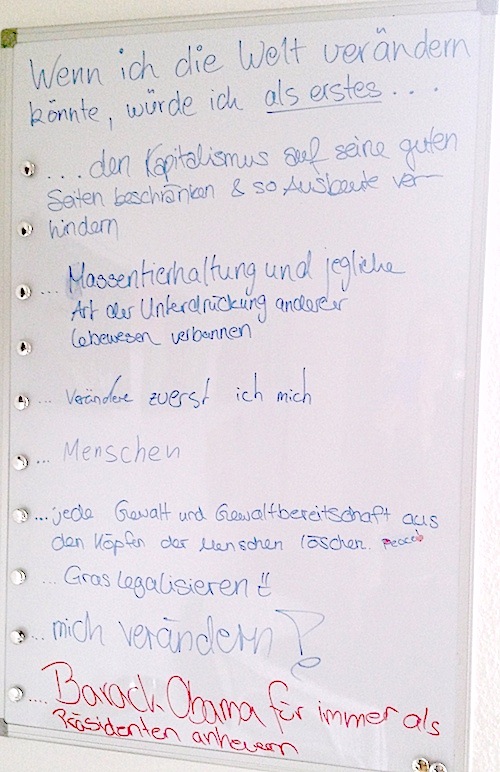 Wenn ich die Welt verändern
könnte, würde ich als erstes...
...den Kapitalismus auf seine guten
Seiten beschränken & so Ausbeute ver-
hindern
... Massentierhaltung und jegliche
Art der Unterdrückung anderer
Lebewesen verbannen
... Verändere zuerst ich mich
... Menschen
...jede Gewalt und Gewaltbereitschaft aus
den Köpfen der Menschen löschen. Peace
... Gras legalisieren!!
...mich verändern?
.... Barack Obama für immer als
Präsidenten anheuern